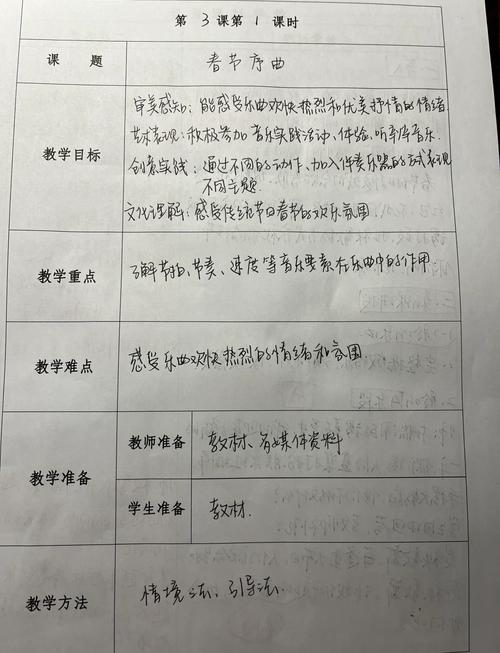 第 3 课第 1 课时
课 题 春节序曲
教学目标
审美感知：能感受乐曲欢快热烈和优美抒情的情绪
艺术表现：积极参加音乐实践活动，体验、听辨音乐.
创意实践：通过不同的动作，加入伴奏乐器的形式表现
不同主题.
文化理解：感受传统节日春节的欢乐氛围
教学重点 了解节拍、节奏、速度等音乐要素在乐曲中的作用
教学难点 感受乐曲欢快热烈的情绪和氛围
教学准备
教师准备 教材、多媒体资料
学生准备 教材.
教学方法 情境法、引导法.